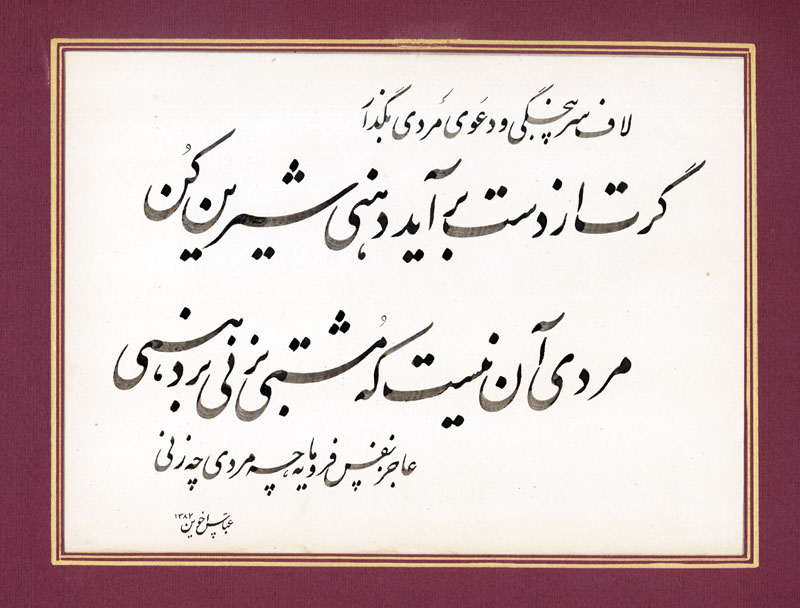 لاف سرپنجگی و دعوی مَردی بگذار
گرت از دست برآید دهنی شیرین کُن
مردی آن نیست که مُشتی بزنی بر دهنی
عاجز نفس فرومایه چه مردی چه زنی
عباس اخوین ۱۳۸۲